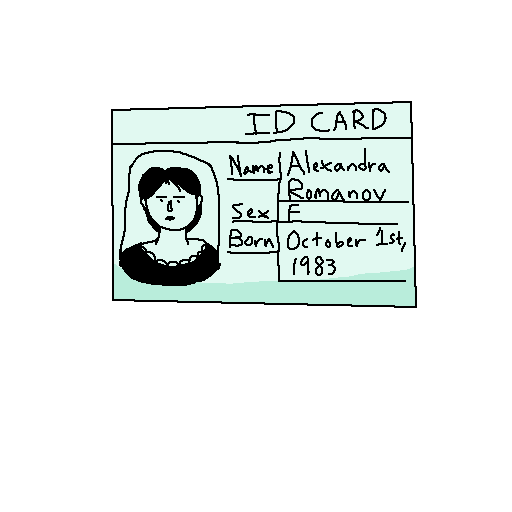 ID CARD
Name Alexandra
Romanov
Sex F
Born October 1st,
1983